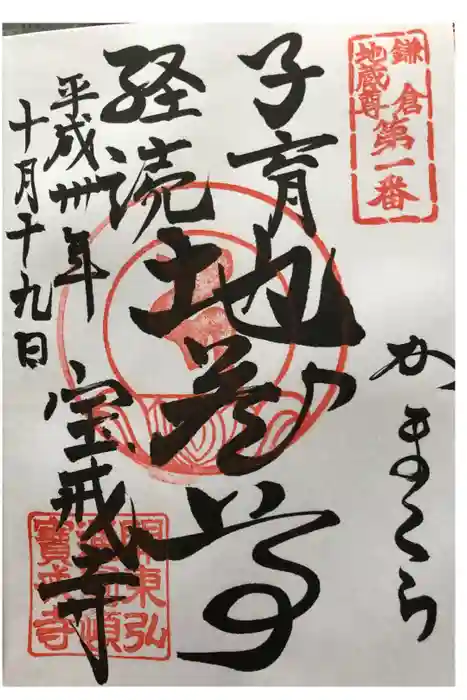 鎌倉
地蔵尊
第一番
かまくら
子育
経読
地蔵尊
平成卅年
十月十九日
宝戒寺
關東弘
寶戒寺